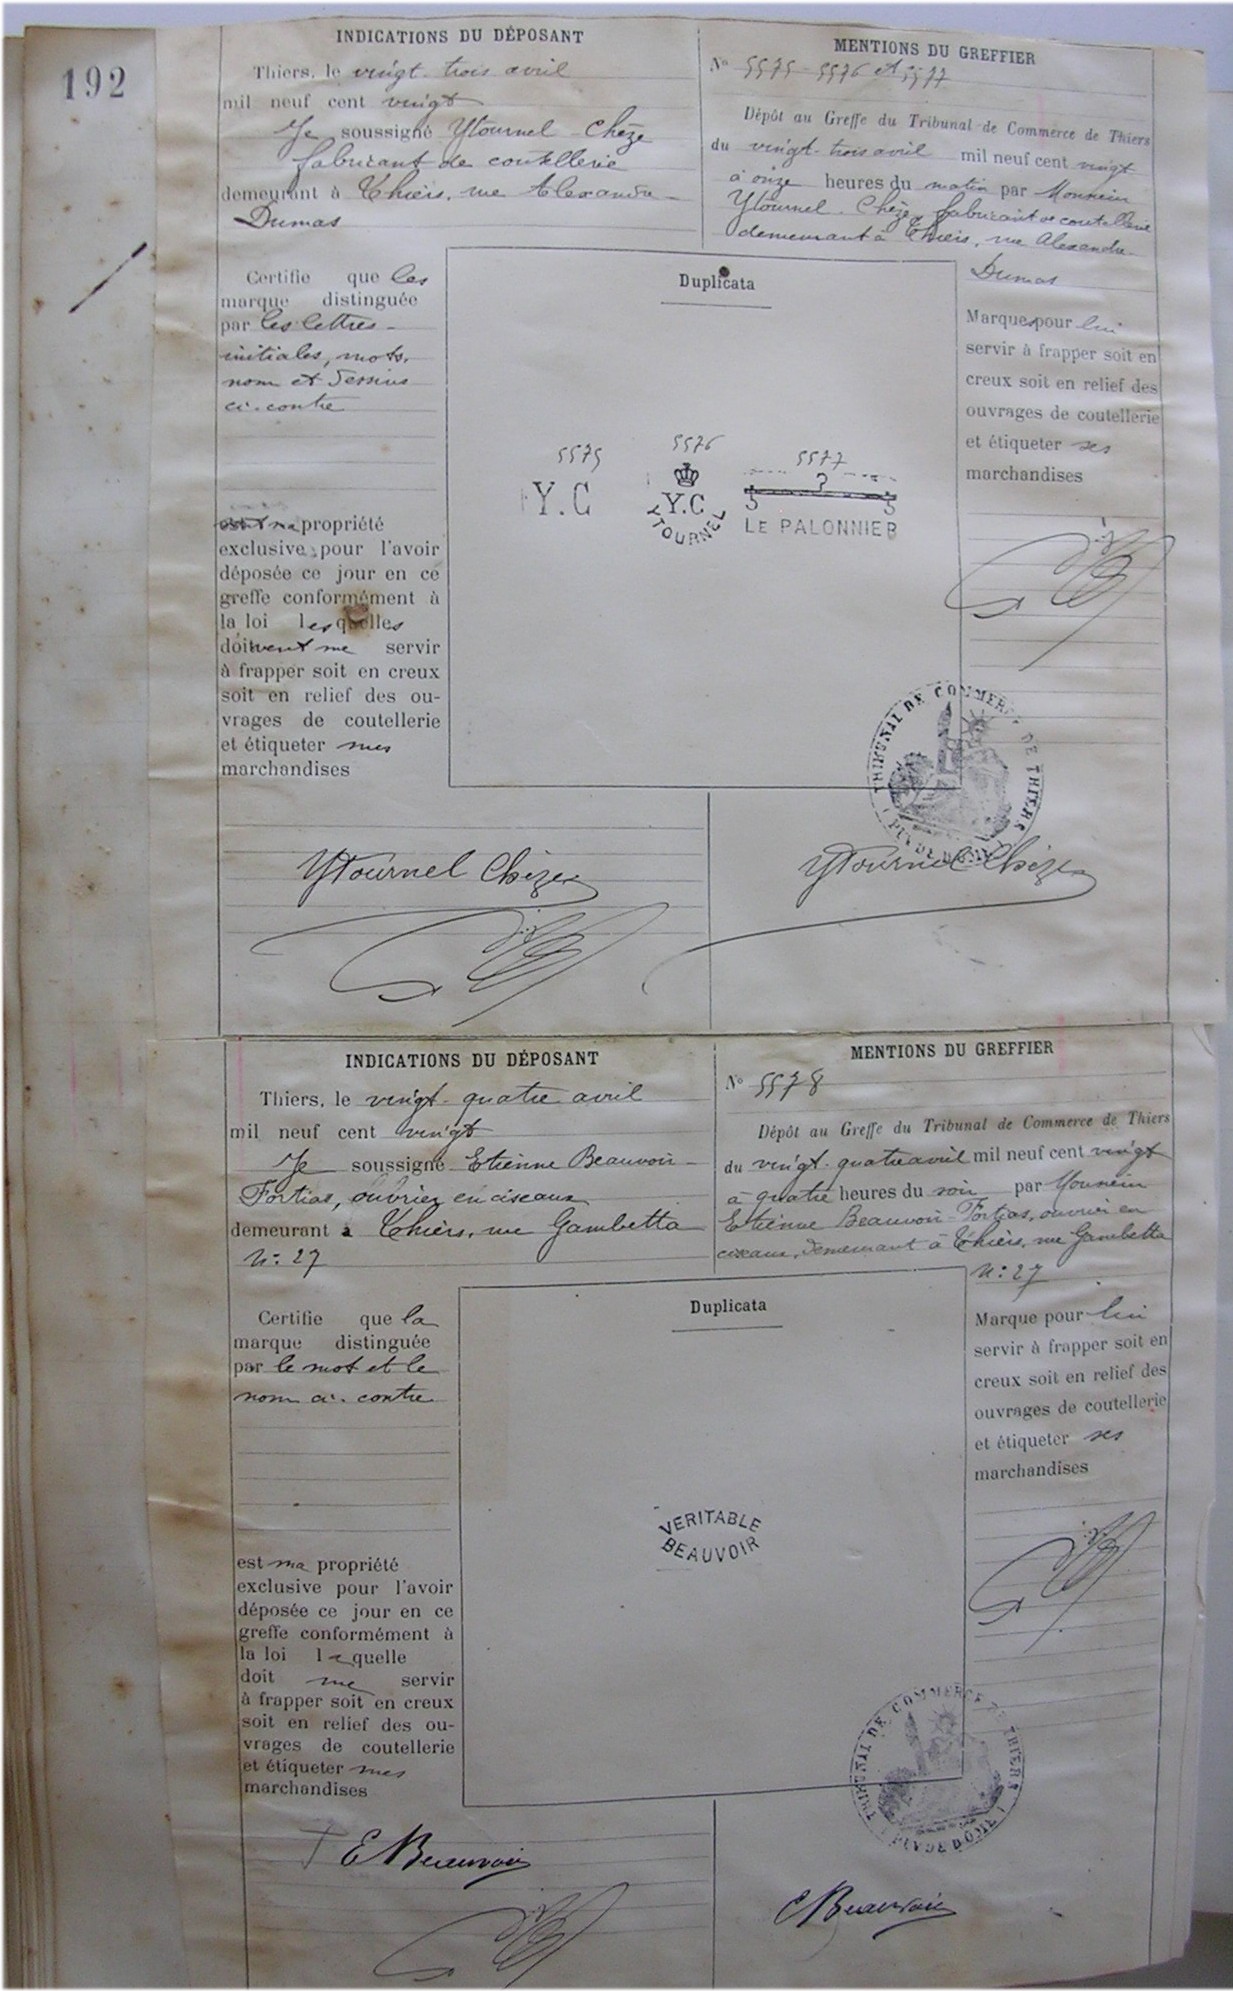 192
INDICATIONS DU DÉPOSANT
Thiers, le vingt-trois avril
mil neuf cent vingt
Je soussigné Ytournel-Chèze
fabricant de coutellerie
demeurant à Thiers, rue Alexandre
Dumas
MENTIONS DU GREFFIER
N° 5575-5576 et 5577
Dépôt au Greffe du Tribunal de Commerce de Thiers
du vingt-trois avril mil neuf cent vingt
à onze heures du matin par Monsieur
Ytournel-Chèze, fabricant de coutellerie
demeurant à Thiers, rue Alexandre
Dumas
Certifie que les
marque distinguée
par les lettres
initiales, mots,
nom et dessins
ci-contre
ma propriété
exclusive pour l'avoir
déposée ce jour en ce
greffe conformément à
la loi lesquelles
doivent me servir
à frapper soit en creux
soit en relief des ou-
vrages de coutellerie
et étiqueter mes
marchandises
Duplicata
5575 5576 5577
Y.C
Y.C
YTOURNEL
LE PALONNIER
Marques pour lui
servir à frapper soit en
creux soit en relief des
ouvrages de coutellerie
et étiqueter ses
marchandises
TRIBUNAL DE COMMERCE DE THIERS
PUY DE DÔME
Ytournel Chèze
Ytournel Chèze
INDICATIONS DU DÉPOSANT
Thiers, le vingt-quatre avril
mil neuf cent vingt
Je soussigné Etienne Beauvoir-
Fortias, ouvrier en ciseaux
demeurant à Thiers, rue Gambetta
N: 27
MENTIONS DU GREFFIER
N° 5578
Dépôt au Greffe du Tribunal de Commerce de Thiers
du vingt-quatre avril mil neuf cent vingt
à quatre heures du soir par Monsieur
Etienne Beauvoir-Fortias, ouvrier en
ciseaux, demeurant à Thiers, rue Gambetta
N: 27
Certifie que la
marque distinguée
par le mot et le
nom ci-contre
est ma propriété
exclusive pour l'avoir
déposée ce jour en ce
greffe conformément à
la loi laquelle
doit me servir
à frapper soit en creux
soit en relief des ou-
vrages de coutellerie
et étiqueter mes
marchandises
Duplicata
VERITABLE
BEAUVOIR
Marque pour lui
servir à frapper soit en
creux soit en relief des
ouvrages de coutellerie
et étiqueter ses
marchandises
TRIBUNAL DE COMMERCE DE THIERS
PUY DE DÔME
E Beauvoir
E Beauvoir